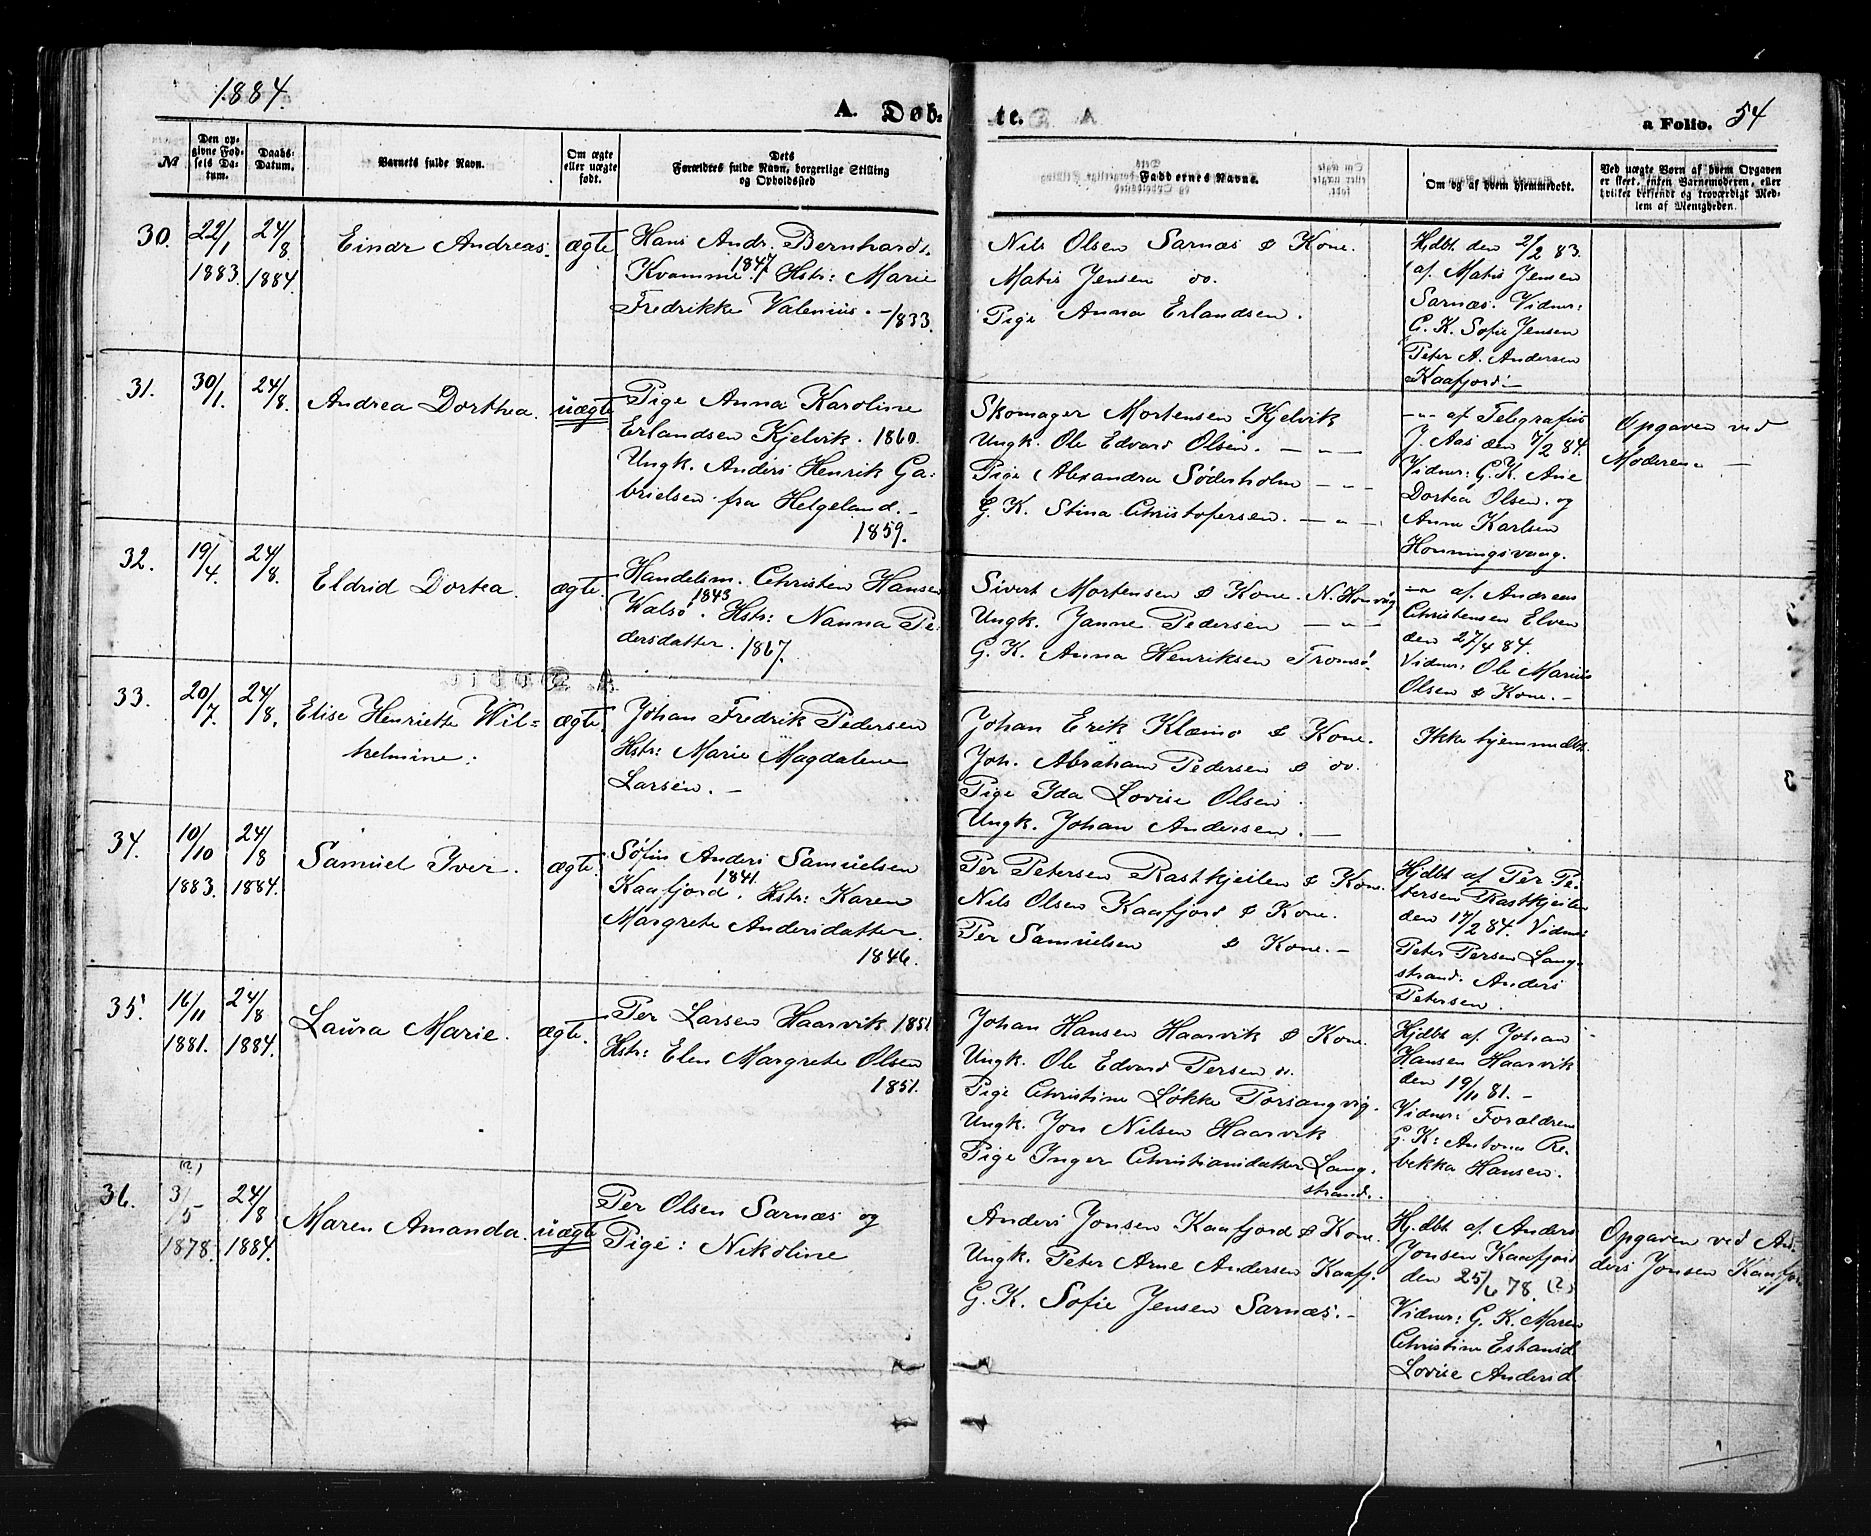 1884.
A. Døb=
te.
a Folio. 54
№
Den op-
givne Fød-
sels Da-
tum.
Daabs-
Datum.
Barnets fulde Navn.
Om ægte
eller uægte
født.
Dets
Forældres fulde Navn, borgerlige Stilling
og Opholdssted
Faddernes Navne.
Om og af hvem hjemmedøbt.
Ved uægte Børn af hvem Opgaven
er skeet, enten Barnemoderen, eller
hvilket bekjendt og troværdigt Med-
lem af Menigheden.
30.
22/1
1883.
24/8
1884.
Einar Andreas.
ægte
Hans Andr. Bernhards.
Kvamme 1847. Hstr: Marie
Fredrikke Valenius. - 1833.
Nils Olsen Sarnæs & Kone.
Matis Jensen do.
Pige Anna Erlandsen.
Hjdbt den 2/2 83.
af Matis Jensen
Sarnæs. Vidner:
G. K. Sofie Jensen
Peter A. Andersen
Kaafjord. -
31.
30/1.
24/8.
Andrea Dorthea.
uægte
Pige Anna Karoline
Erlandsen Kjelvik. 1860.
Ungk. Anders Henrik Ga-
brielsen fra Helgeland. -
1859.
Skomager Mortensen Kjelvik
Ungk. Ole Edvard Olsen. - " -
Pige Alexandra Söderholm - " -
G. K. Stina Christofersen. - " -
- " - af Telegrafist
J. Aas den 7/2 84.
Vidner: G. K. Ane
Dortea Olsen og
Anne Karlsen
Honningsvaag.
Opgaven ved
Moderen. -
32.
19/4.
24/8.
Eldrid Dortea.
ægte.
Handelsm. Christen Hansen
Kalsö 1843. Hstr: Nanna Pe-
dersdatter. 1867.
Sivert Mortensen & Kone. N. Honvåg
Ungk. Janne Pedersen - " -
G. K. Anna Henriksen Tromsö.
- " - af Andreas
Christensen Elven
den 27/4 84.
Vidner: Ole Marius
Olsen & Kone. -
33.
20/7.
24/8.
Elise Henriette Wil=
helmine.
ægte.
Johan Fredrik Pedersen
Hstr: Marie Magdalene
Larsen. -
Johan Erik Klæmo & Kone.
Joh. Abraham Pedersen & do.
Pige Ida Lovise Olsen.
Ungk. Johan Andersen. -
Ikke hjemmedbt.
34.
10/10
1883.
24/8
1884.
Samuel Iver.
ægte.
Søfin Anders Samuelsen
Kaafjord 1841. Hstr: Karen
Margrete Andersdatter.
1846.
Per Petersen Rastkjeilen & Kone.
Nils Olsen Kaafjord & Kone.
Per Samuelsen & Kone. -
Hjdbt af Per Pe-
tersen Rastkjeilen
den 17/2 84. Vidner
Peter Persen Lang-
strand. Anders
Petersen.
35.
16/11
1881.
24/8
1884.
Laura Marie.
ægte.
Per Larsen Haarvik 1851
Hstr: Elen Margrete Olsen
1851.
Johan Hansen Haarvik & Kone.
Ungk. Ole Edvard Persen do.
Pige Christine Løkke Porsangvig.
Ungk. Jon Nilsen Haarvik
Pige Inger Christiansdatter Lang-
strand.
Hjdbt af Johan
Hansen Haarvik
den 19/11 81. -
Vidner: Forældrene
G. K: Antona Re-
bekka Hansen.
36.
(?)
3/5
1878.
24/8
1884.
Maren Amanda.
uægte
Per Olsen Sarnæs og
Pige: Nikoline
Anders Jonsen Kaafjord & Kone.
Ungk. Peter Arne Andersen Kaafj.
G. K. Sofie Jensen Sarnæs. -
Hjdbt af Anders
Jonsen Kaafjord
den 25/6 78. (?)
Vidner: G. K. Maren
Christine Eshansd.
Lovise Andersd.
Opgaven ved An-
ders Jonsen Kaafjor